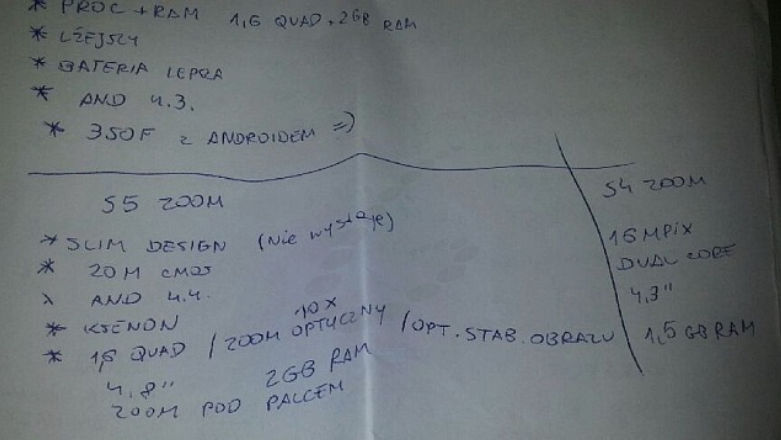 * PROC + RAM 1,6 QUAD + 2GB RAM
* LŻEJSZY
* BATERIA LEPSZA
* AND 4.3.
* 350F z ANDROIDEM =)
S5 ZOOM
* SLIM DESIGN (Nie wystaje)
* 20M CMOS
* AND 4.4.
* KSENON
* 1,6 QUAD / ZOOM OPTYCZNY 10X / OPT. STAB. OBRAZU
4,8" 2GB RAM
ZOOM POD PALCEM
S4 ZOOM
16 MPIX
DUAL CORE
4,3"
1,5 GB RAM